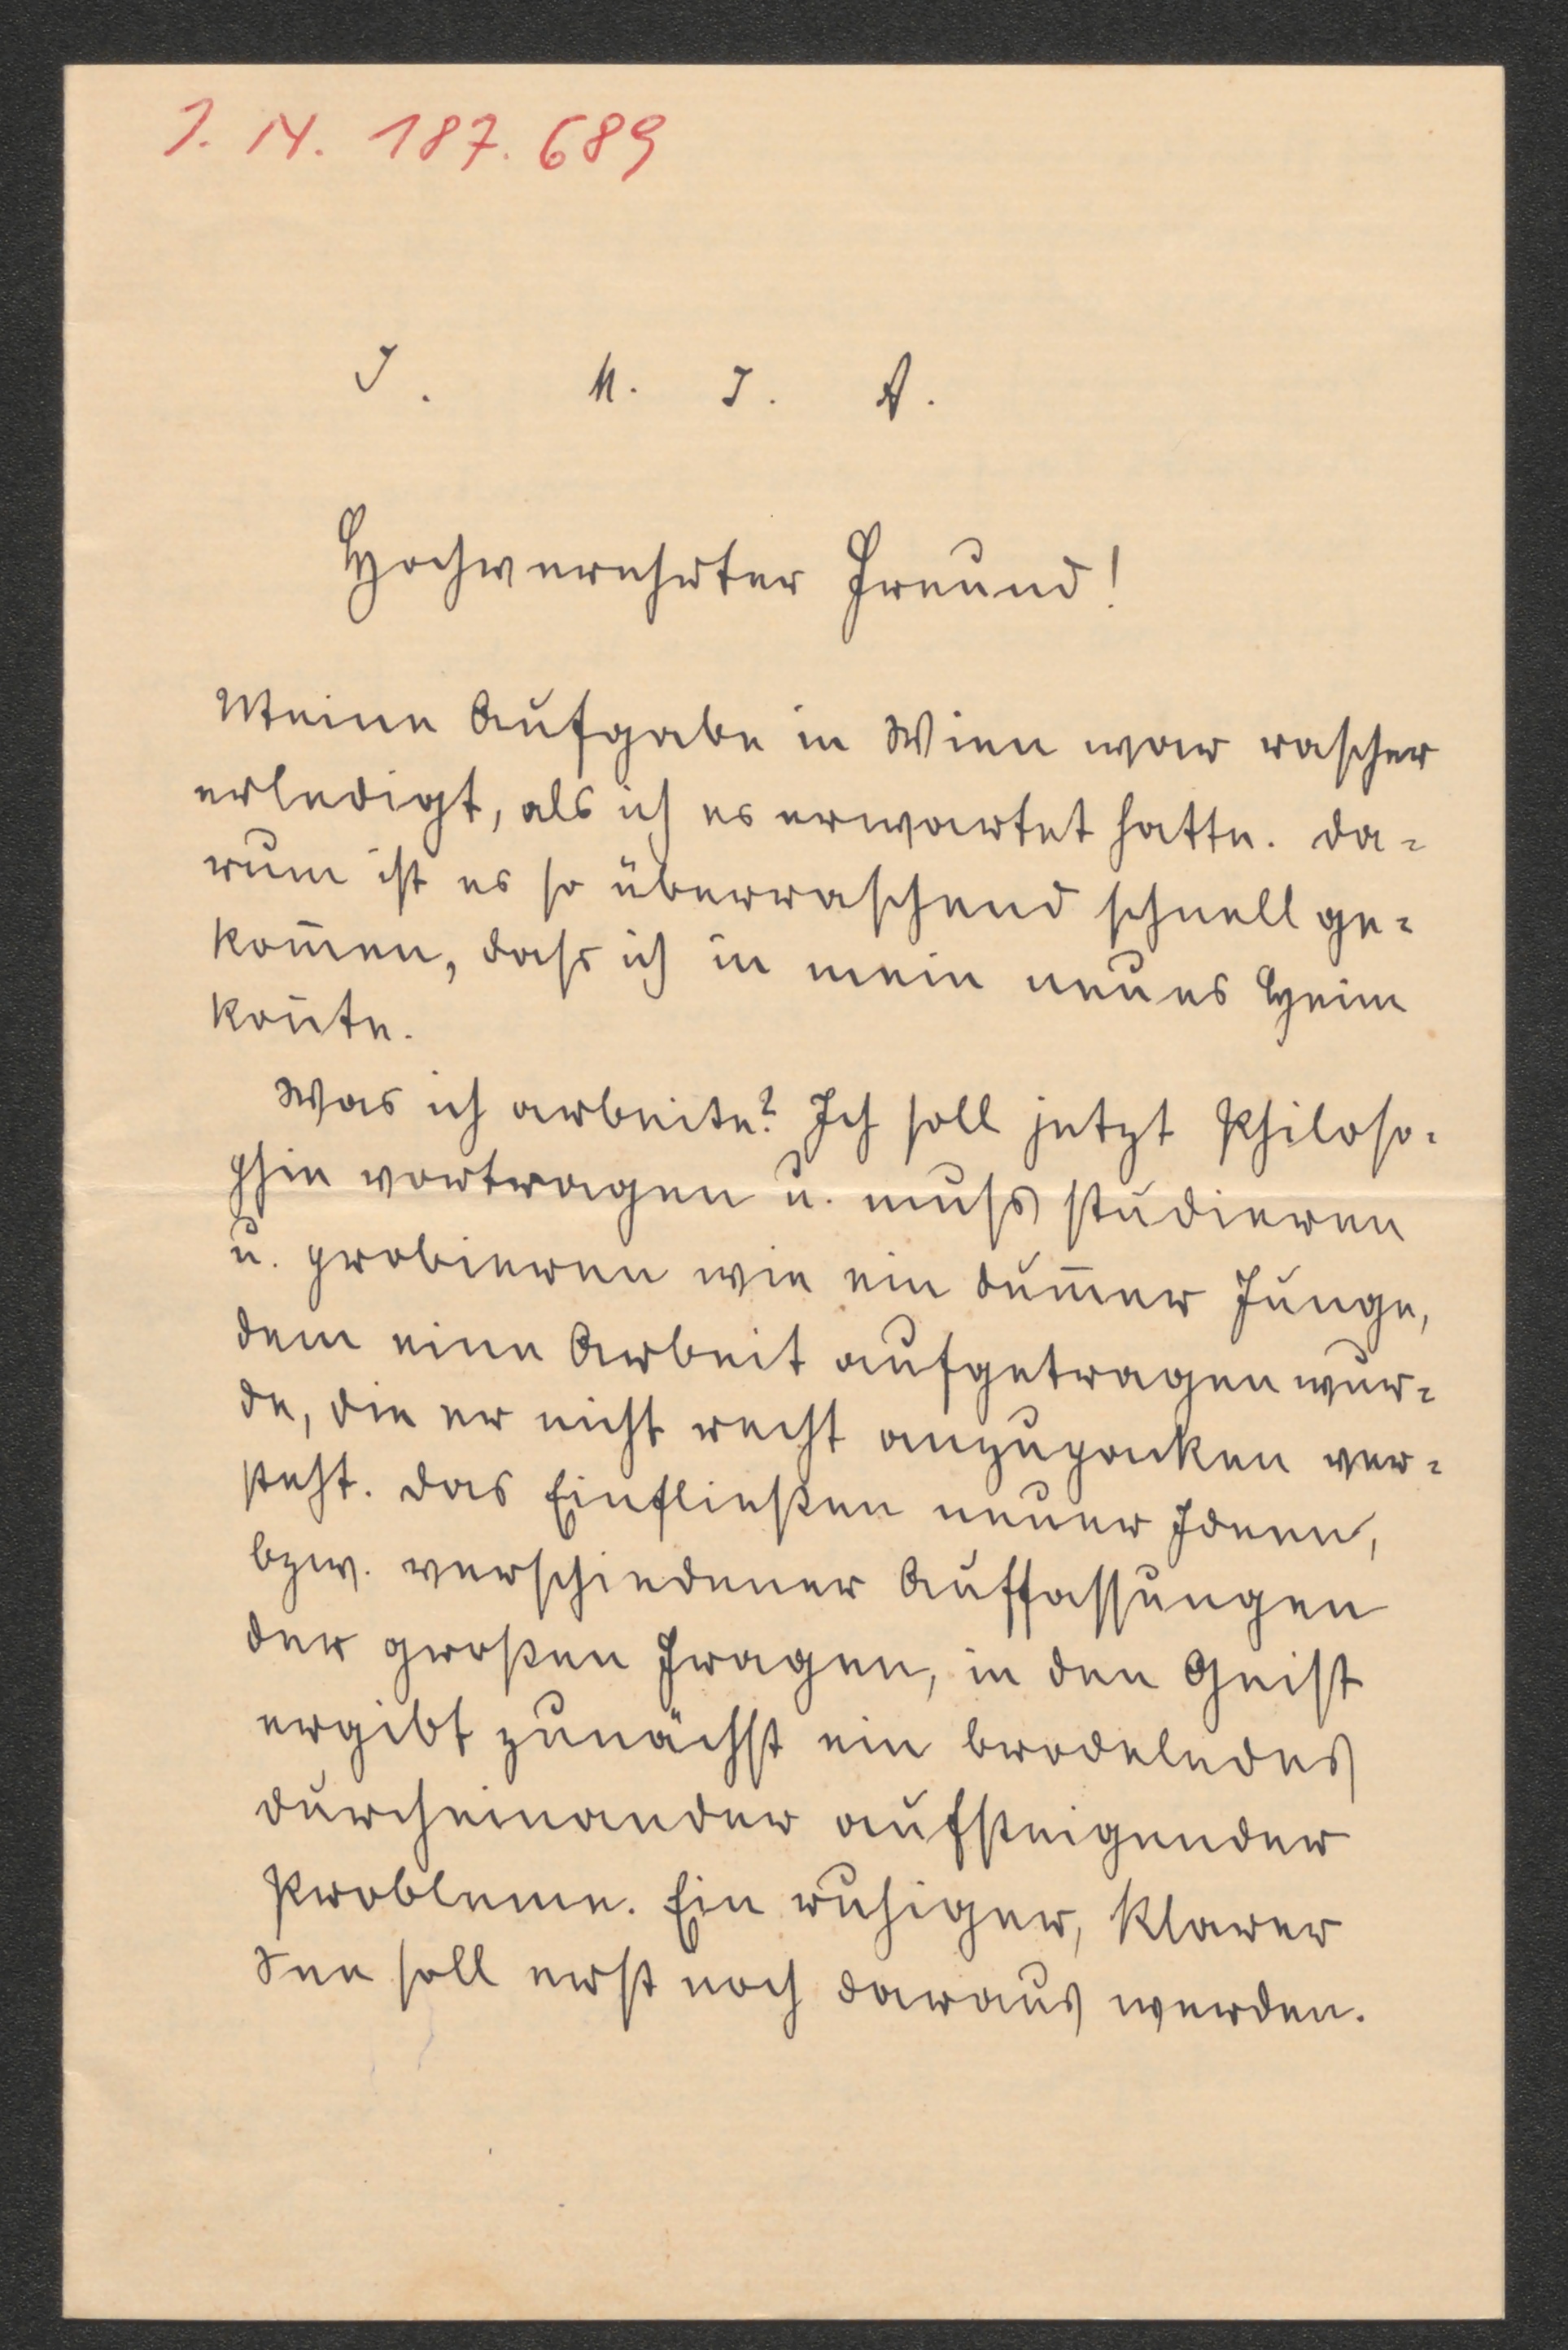 J. N. 187.689
J. M. J. A.
Hochverehrter Freund!
Meine Aufgabe in Wien war rascher
erledigt, als ich es erwartet hatte. Da=
rum ist es so überraschend schnell ge=
kom̄en, dass ich in mein neues Heim
kon̄te.
Was ich arbeite? Ich soll jetzt Philoso=
phie vortragen u. muss studieren
u. probieren wie ein dum̄er Junge,
dem eine Arbeit aufgetragen wur=
de, die er nicht recht anzupacken ver=
steht. Das Einfließen neuer Ideen,
bzw. verschiedener Auffassungen
der großen Fragen, in den Geist
ergibt zunächst ein brodelndes
Durcheinander aufsteigender
Probleme. Ein ruhiger, klarer
See soll erst noch daraus werden.